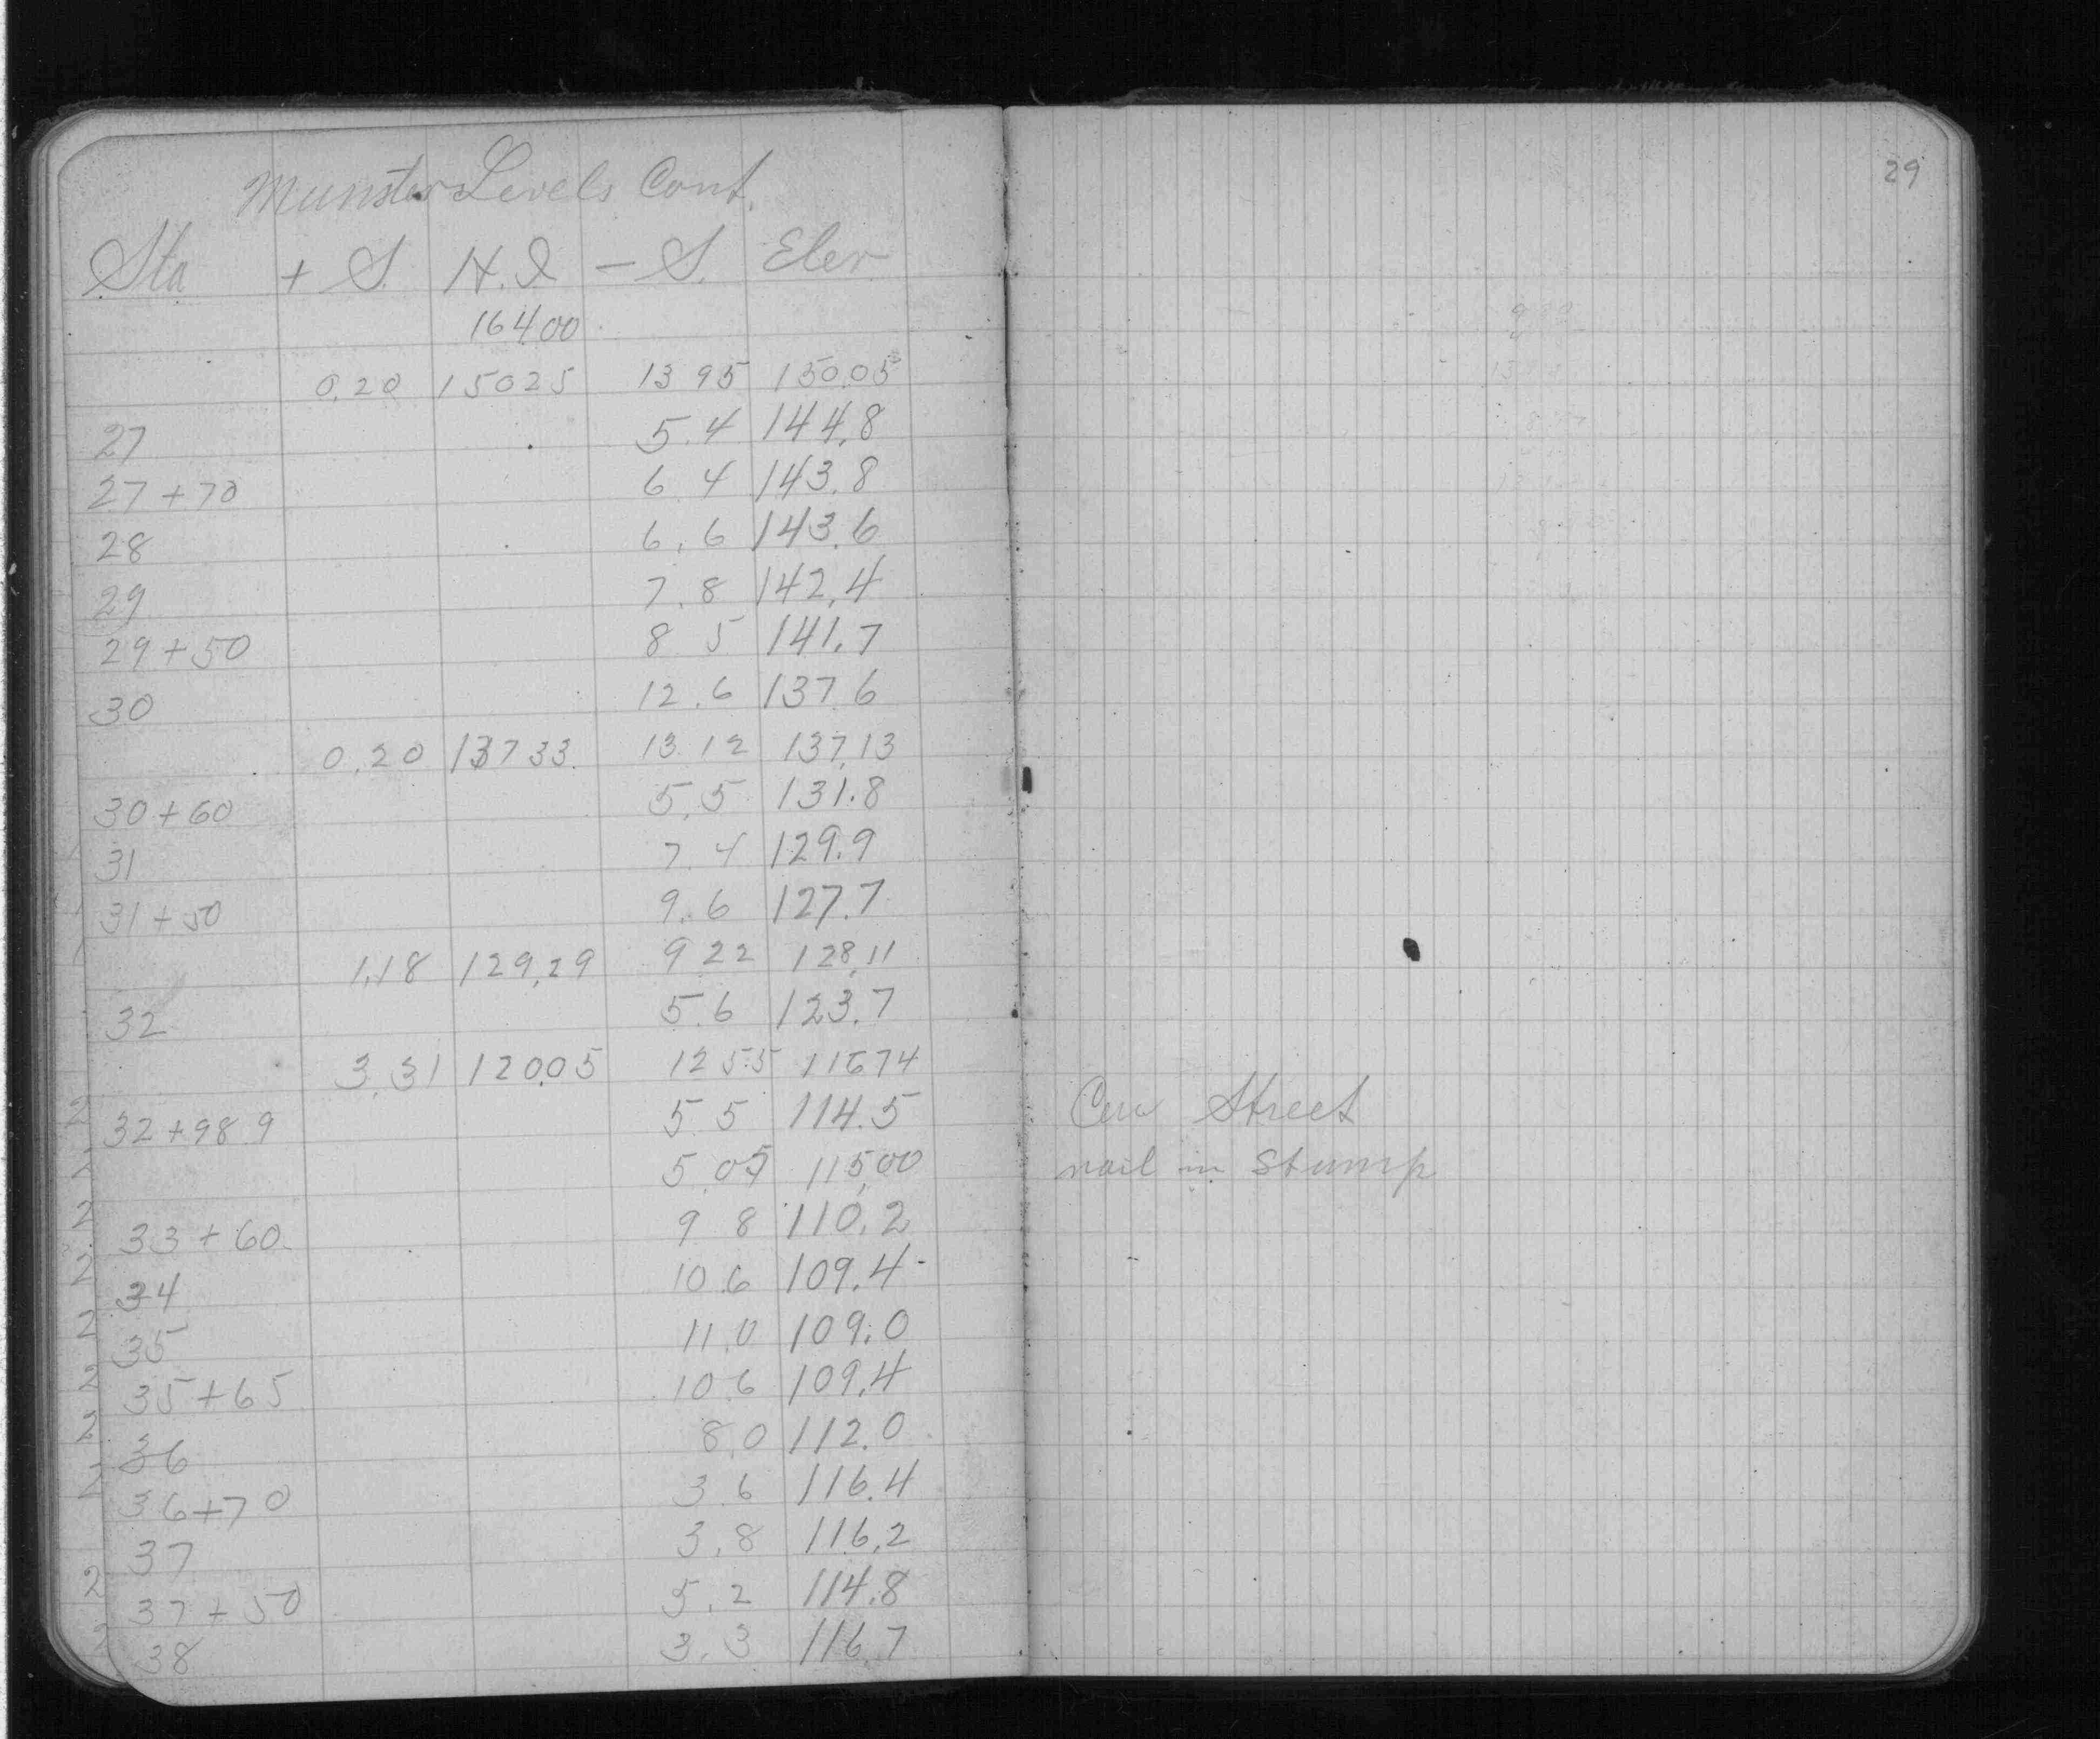 Munster Levels Cont.
Sta + S. H.I. - S. Elev
164.00
0.20 150 25 13 95 150.05
27 5.4 144.8
27+70 6 4 143.8
28 6.6 143.6
29 7.8 142.4
29+50 8 5 141.7
30 12.6 137.6
0.20 137 33 13 12 137.13
30+60 5.5 131.8
31 7.4 129.9
31+50 9.6 127.7
1.18 129.29 9 22 128.11
32 5.6 123.7
3.31 120.05 12 55 116 74
32+98 9 5 5 114.5
5.05 115.00
33+60 9 8 110.2
34 10.6 109.4
35 11.0 109.0
35+65 10.6 109.4
36 8.0 112.0
36+70 3 6 116.4
37 3.8 116.2
37+50 5.2 114.8
38 3.3 116.7
29
Street
nail in Stump